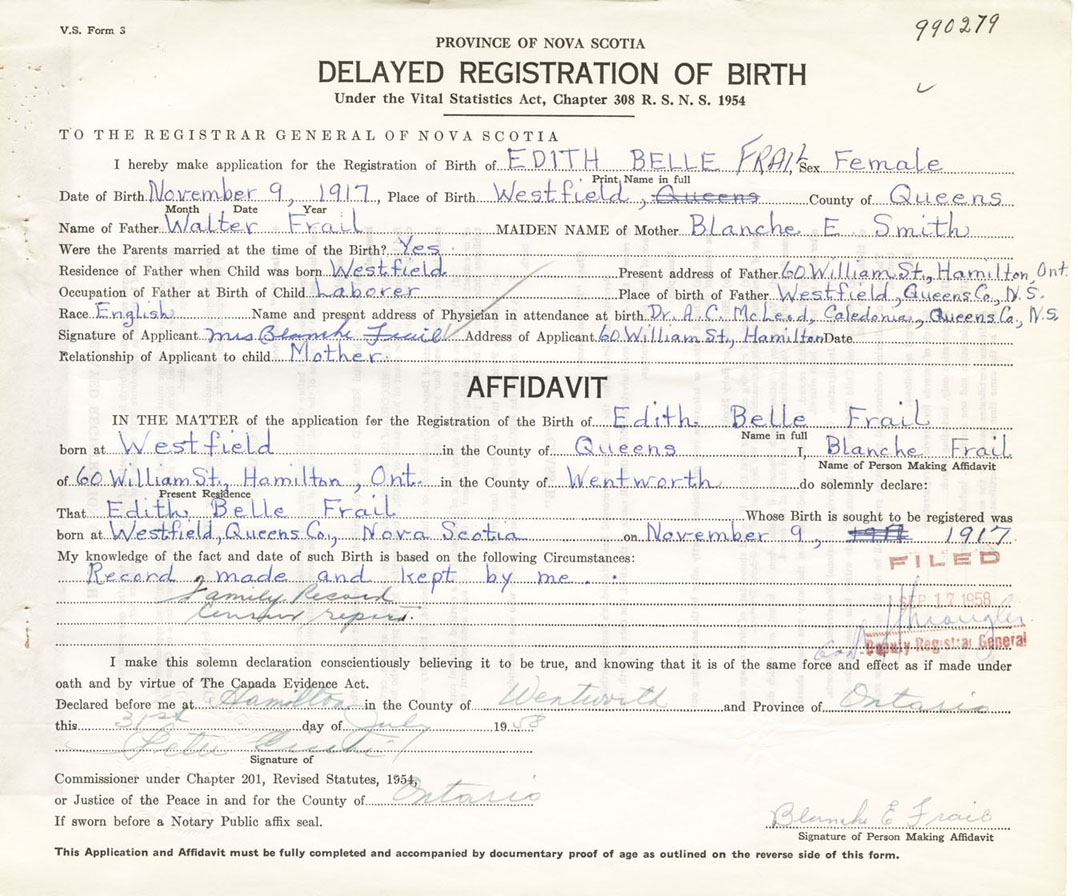 V.S. Form 3
990279
PROVINCE OF NOVA SCOTIA
DELAYED REGISTRATION OF BIRTH
Under the Vital Statistics Act, Chapter 308 R. S. N. S. 1954
TO THE REGISTRAR GENERAL OF NOVA SCOTIA
I hereby make application for the Registration of Birth of EDITH BELLE FRAIL, Sex Female
Print Name in full
Date of Birth November 9, 1917, Place of Birth Westfield, Queens County of Queens
Month Date Year
Name of Father Walter Frail MAIDEN NAME of Mother Blanche E Smith
Were the Parents married at the time of the Birth? Yes
Residence of Father when Child was born Westfield Present address of Father 60 William St., Hamilton, Ont.
Occupation of Father at Birth of Child Laborer Place of birth of Father Westfield, Queens Co., N.S.
Race English Name and present address of Physician in attendance at birth Dr. A. C. McLeod, Caledonia, Queens Co., N.S.
Signature of Applicant Mrs Blanche Frail Address of Applicant 60 William St., Hamilton Date
Relationship of Applicant to child Mother
AFFIDAVIT
IN THE MATTER of the application for the Registration of the Birth of Edith Belle Frail
Name in full
born at Westfield in the County of Queens I, Blanche Frail
Name of Person Making Affidavit
of 60 William St., Hamilton, Ont. in the County of Wentworth do solemnly declare:
Present Residence
That Edith Belle Frail Whose Birth is sought to be registered was
born at Westfield, Queens Co., Nova Scotia on November 9, 1917
My knowledge of the fact and date of such Birth is based on the following Circumstances:
FILED
Record made and kept by me.
Family Record
SEP 17 1958
Census report.
Deputy Registrar General
I make this solemn declaration conscientiously believing it to be true, and knowing that it is of the same force and effect as if made under
oath and by virtue of The Canada Evidence Act.
Declared before me at Hamilton in the County of Wentworth and Province of Ontario
this 31st day of July 1958
Peter
Signature of
Commissioner under Chapter 201, Revised Statutes, 1954,
or Justice of the Peace in and for the County of Ontario
If sworn before a Notary Public affix seal.
Blanche E Frail
Signature of Person Making Affidavit
This Application and Affidavit must be fully completed and accompanied by documentary proof of age as outlined on the reverse side of this form.